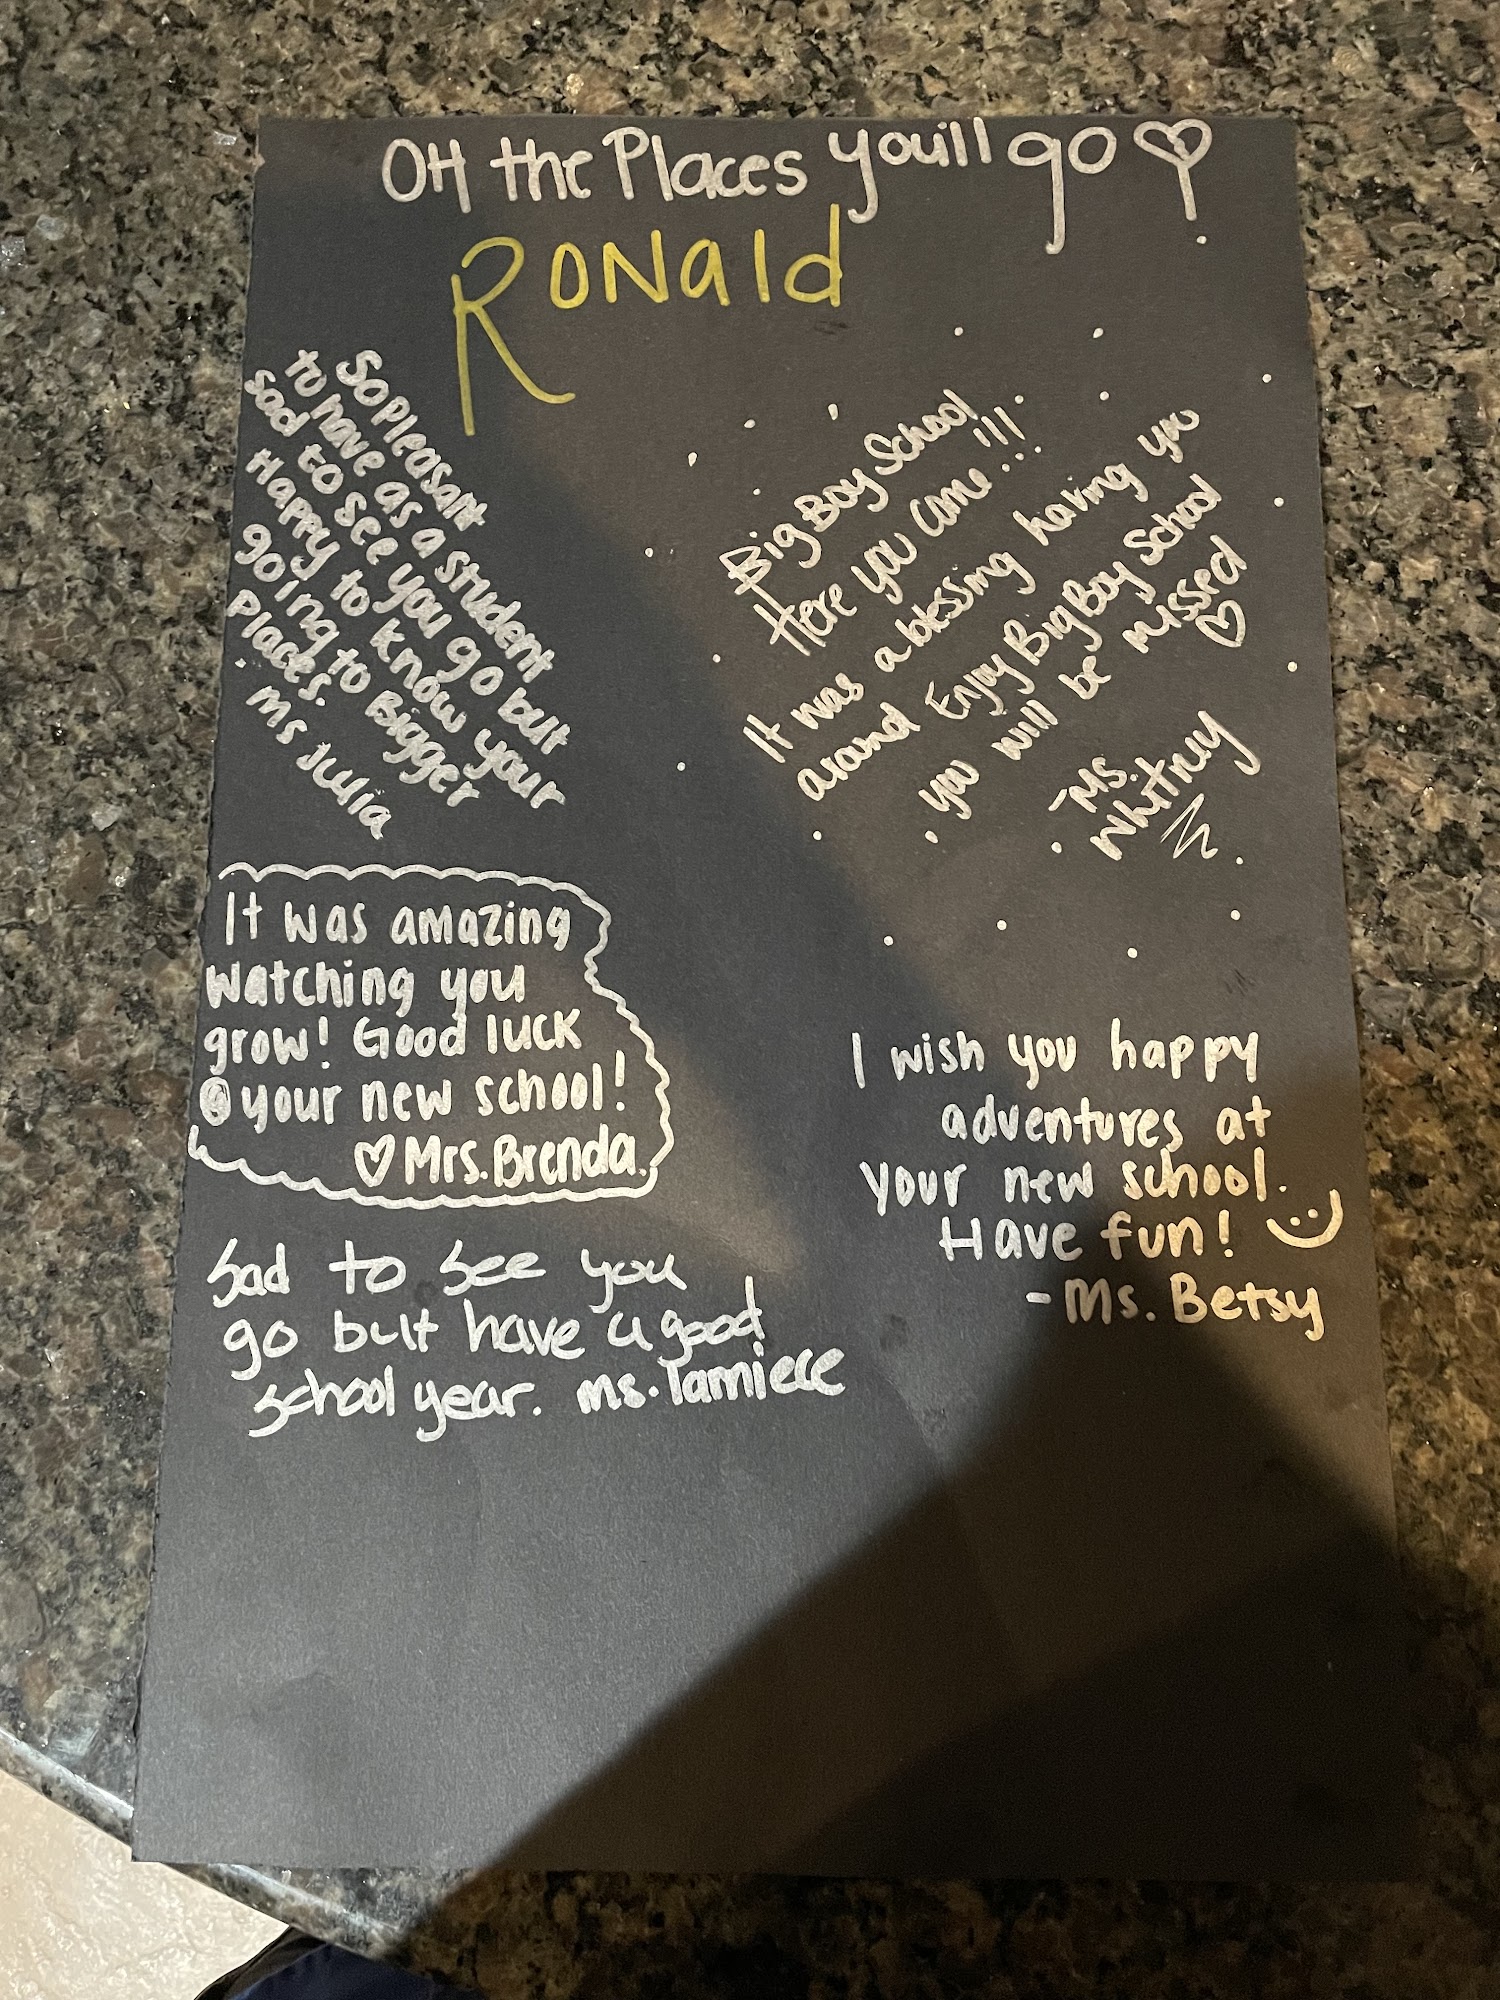 OH the Places you'll go
Ronald
So Pleasant
to have as a student
sad to see you go but
Happy to know your
going to Bigger
Places.
. Ms Julia
Big Boy School
Here you come!!!
It was a blessing having you
around Enjoy Big Boy School
you will be missed
-Ms.
Whitney
It was amazing
watching you
grow! Good luck
@ your new school!
♡ Mrs. Brenda.
I wish you happy
adventures at
your new school.
Have fun! :)
- Ms. Betsy
Sad to see you
go but have a good
school year. ms. Tamiece